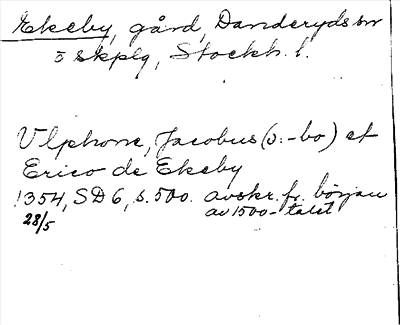 Ekeby, gård, Danderyds sn
ö skplg, Stockh. l.
Vlphone, Jacobus (o: -bo) et
Erico de Ekeby
1354, SD 6, s. 500. avskr. fr. början
28/5 av 1500-talet